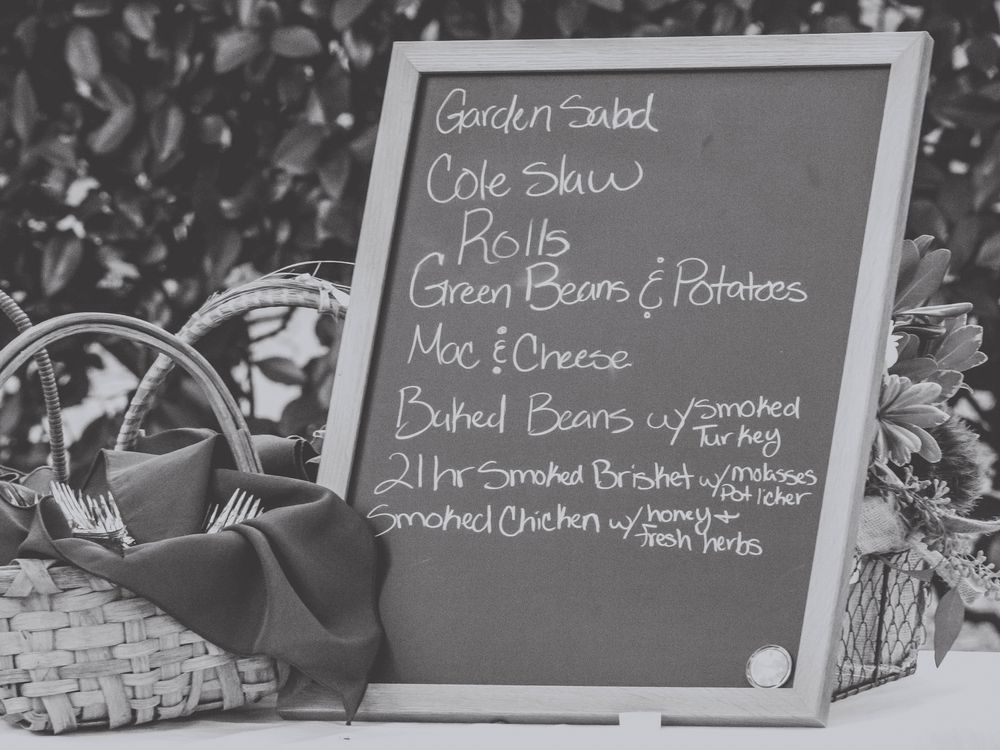 Garden Salad
Cole Slaw
Rolls
Green Beans & Potatoes
Mac & Cheese
Baked Beans w/ Smoked
Turkey
21 hr Smoked Brisket w/ molasses
Pot licker
Smoked Chicken w/ honey +
fresh herbs